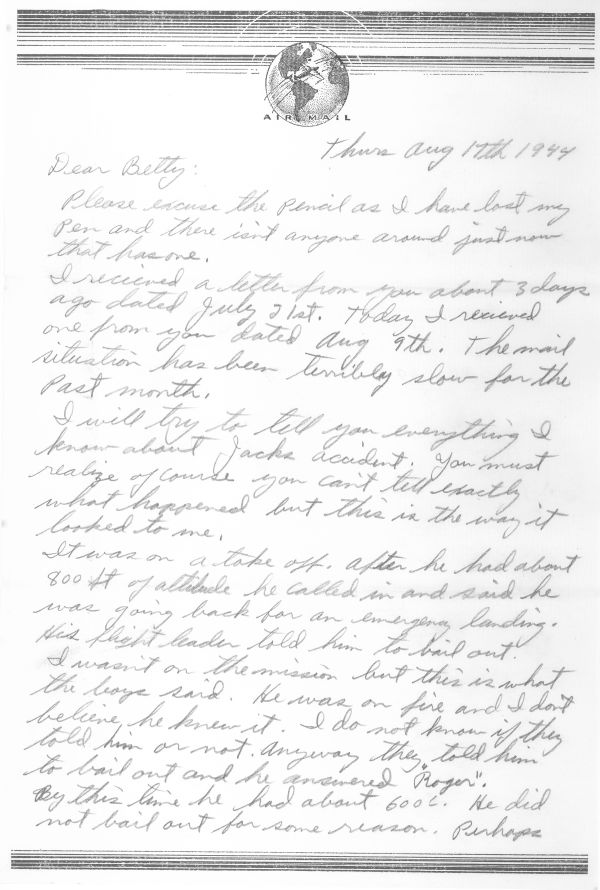 AIR MAIL
Thurs Aug 17th 1944
Dear Betty:
Please excuse the pencil as I have lost my
pen and there isn't anyone around just now
that has one.
I recieved a letter from you about 3 days
ago dated July 21st. Today I recieved
one from you dated Aug 9th. The mail
situation has been terribly slow for the
past month.
I will try to tell you everything I
know about Jacks accident. You must
realize of course you can't tell exactly
what happened but this is the way it
looked to me.
It was on a take off. After he had about
800 ft of altitude he called in and said he
was going back for an emergency landing.
His flight leader told him to bail out.
I wasn't on the mission but this is what
the boys said. He was on fire and I don't
believe he knew it. I do not know if they
told him or not. Anyway they told him
to bail out and he answered "Roger".
By this time he had about 600. He did
not bail out for some reason. Perhaps